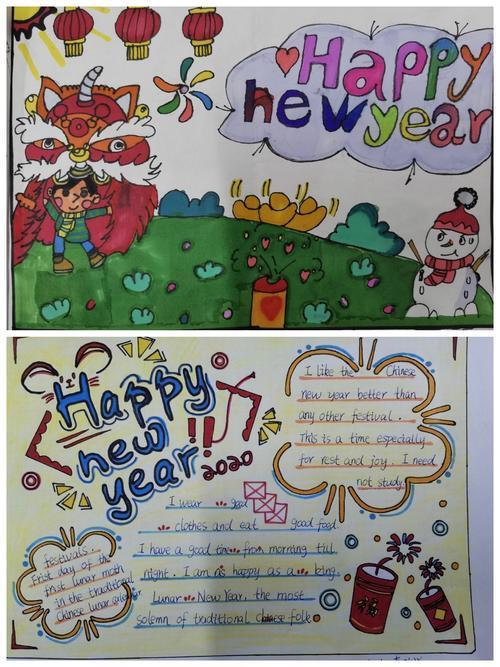 Happy
new year
Happy
new
year!!
2020
I like the Chinese
new year better than
any other festival.
This is a time especially
for rest and joy. I need
not study.
I wear good
clothes and eat good food.
I have a good time from morning till
night. I am as happy as a bing.
Lunar New Year, the most
solemn of traditional Chinese folk
festivals.
Frist day of the
frist lunar moth
in the traditional
Chinese lunar calendar.
福